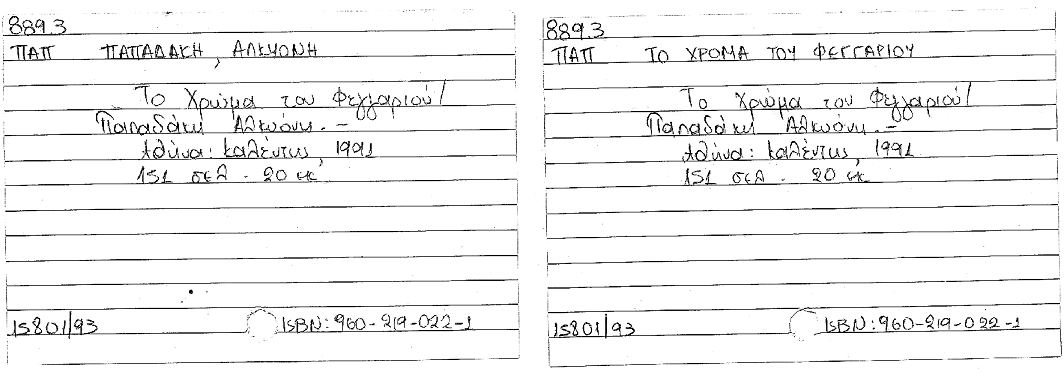 889.3
ΠΑΠ ΠΑΠΑΔΑΚΗ, ΑΛΚΥΟΝΗ
Το Χρώμα του Φεγγαριού/
Παπαδάκη Αλκυόνη. –
Αθήνα: Καλέντης, 1991
151 σελ. 20 εκ
15801/93 ISBN: 960-219-022-1
889.3
ΠΑΠ ΤΟ ΧΡΟΜΑ ΤΟΥ ΦΕΓΓΑΡΙΟΥ
Το Χρώμα του Φεγγαριού/
Παπαδάκη Αλκυόνη. –
Αθήνα: Καλέντης, 1991
151 σελ. 20 εκ
15801/93 ISBN: 960-219-022-1